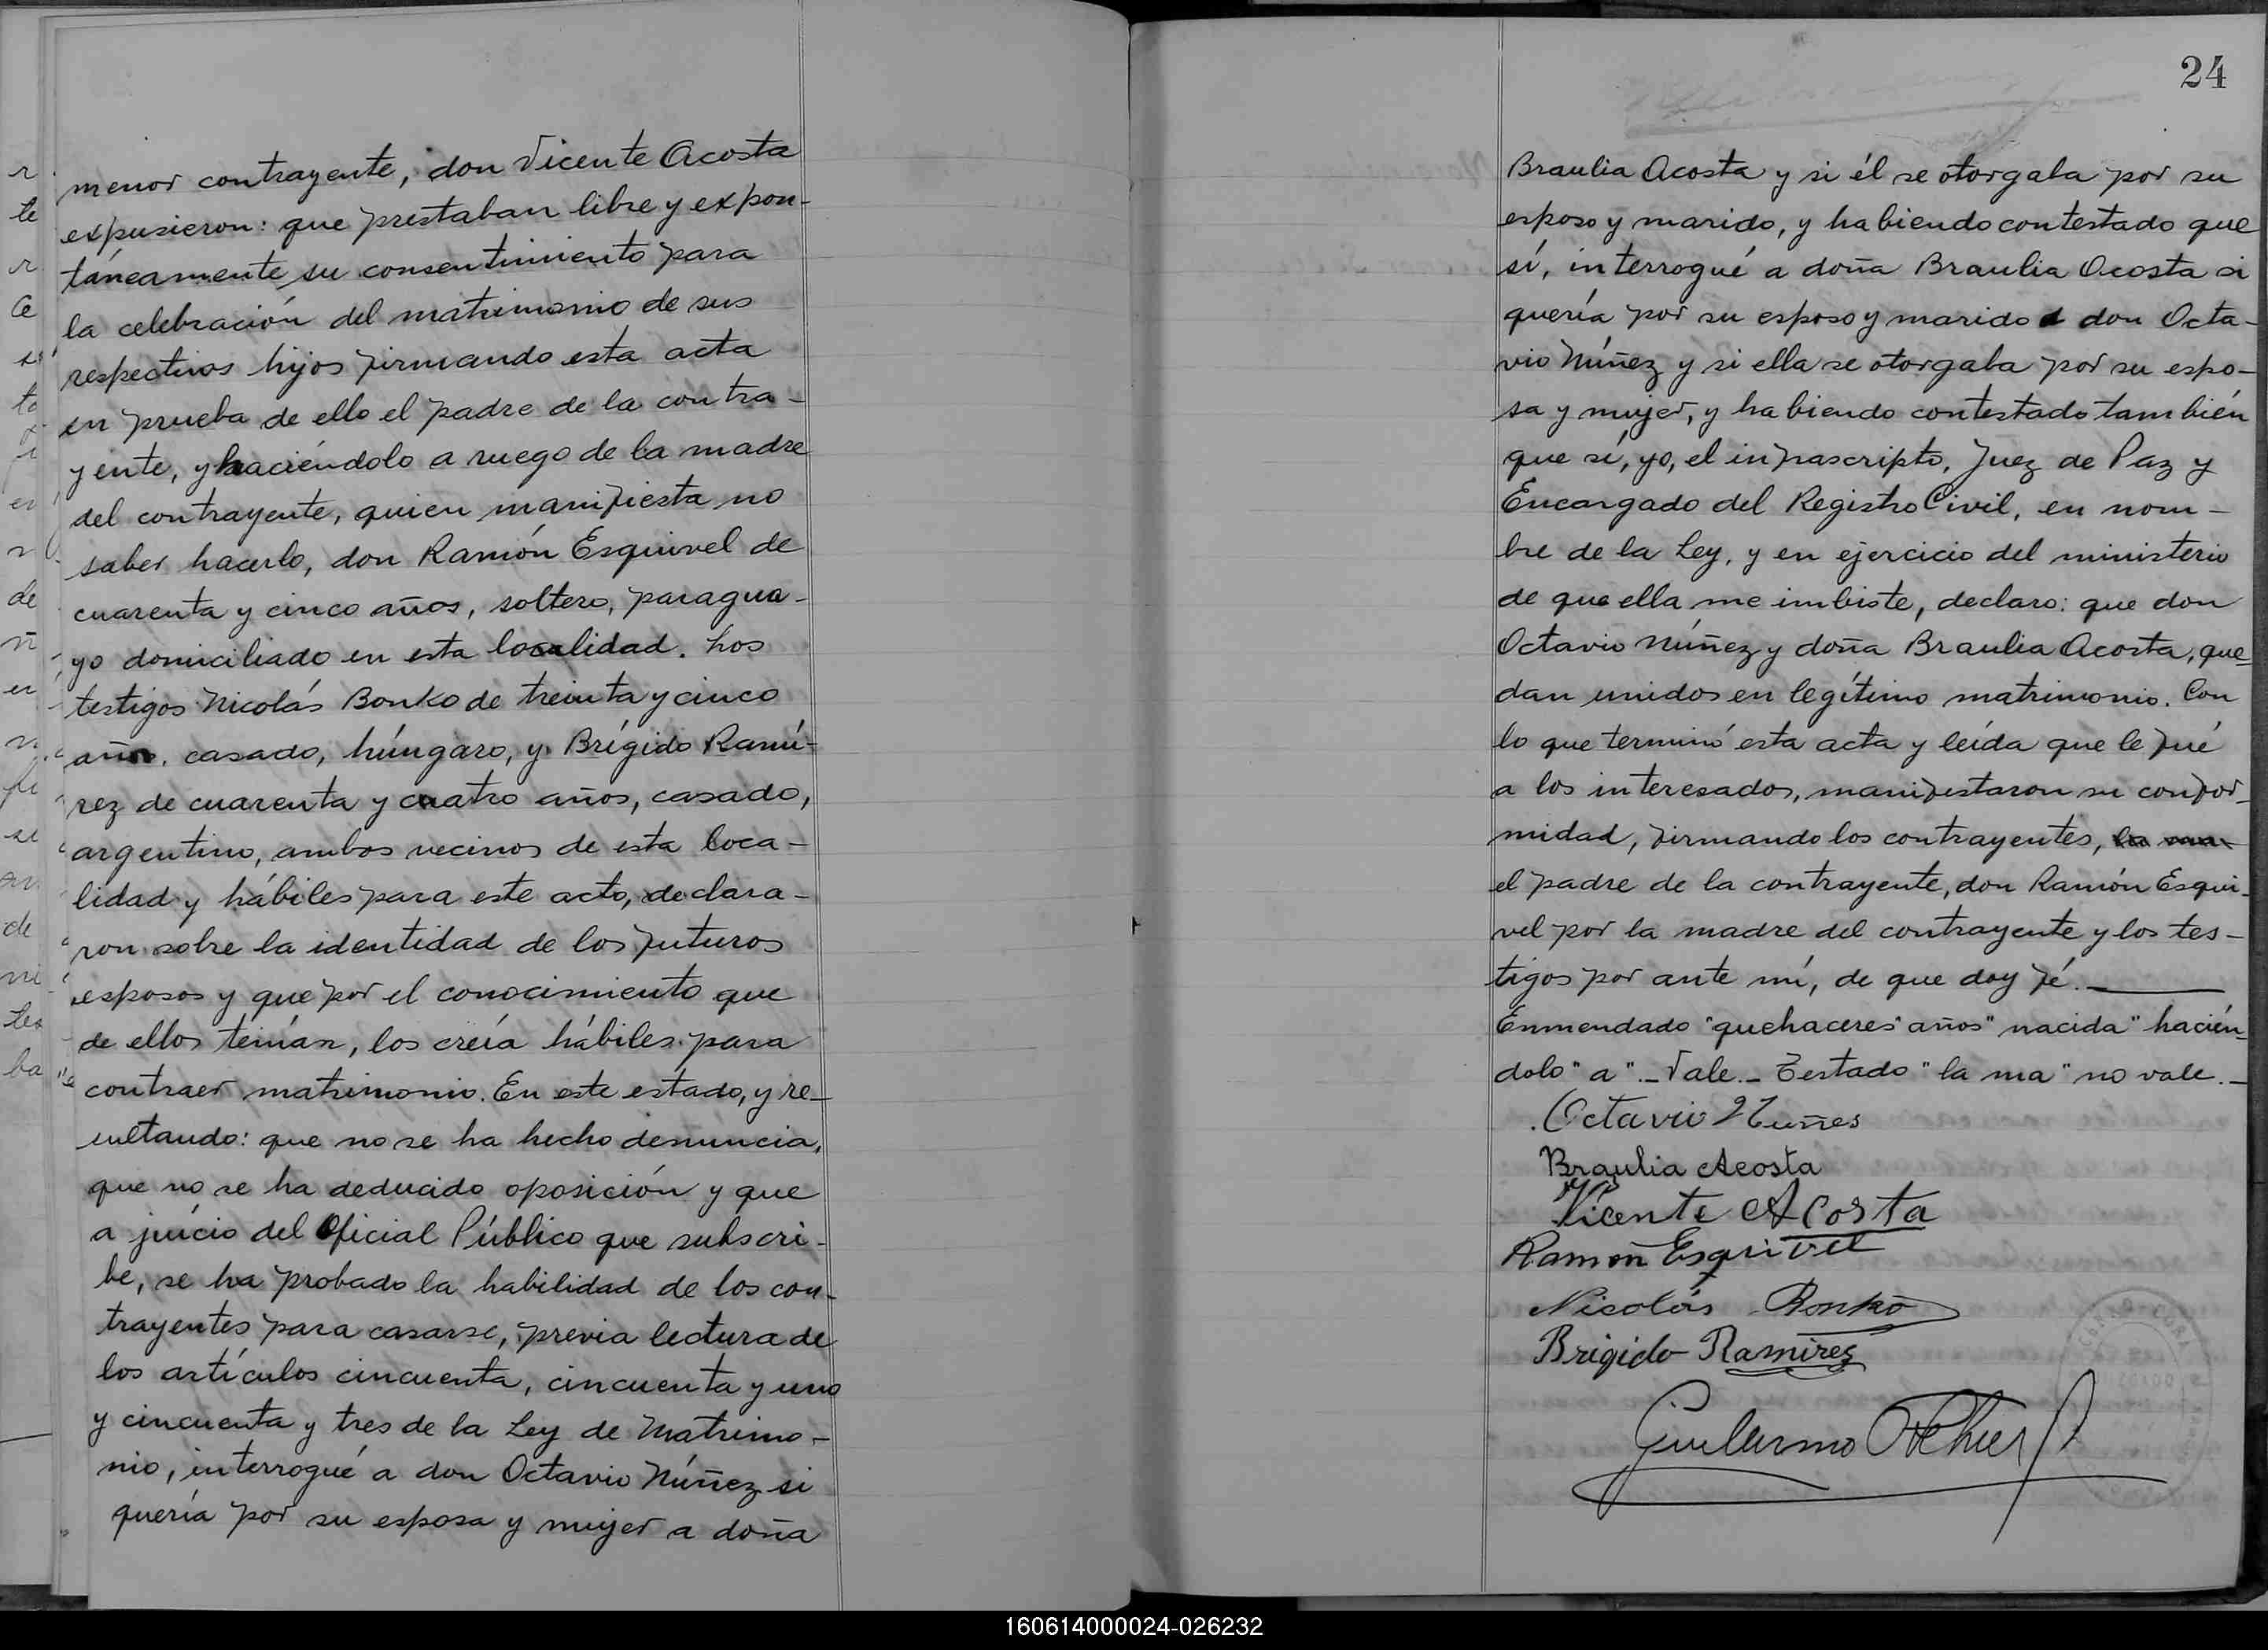 menor contrayente, don Vicente Acosta
expusieron: que prestaban libre y expon-
táneamente su consentimiento para
la celebración del matrimonio de sus
respectivos hijos firmando esta acta
en prueba de ello el padre de la contra-
yente, y haciéndolo a ruego de la madre
del contrayente, quien manifiesta no
saber hacerlo, don Ramón Esquivel de
cuarenta y cinco años, soltero, paragua-
yo domiciliado en esta localidad. Los
testigos Nicolás Bonko de treinta y cinco
años, casado, húngaro, y Brígido Ramí-
rez de cuarenta y cuatro años, casado,
argentino, ambos vecinos de esta loca-
lidad y hábiles para este acto, declara-
ron sobre la identidad de los futuros
esposos y que por el conocimiento que
de ellos tenían, los creía hábiles para
contraer matrimonio. En este estado, y re-
sultando: que no se ha hecho denuncia,
que no se ha deducido oposición y que
a juicio del Oficial Público que subscri-
be, se ha probado la habilidad de los con-
trayentes para casarse, previa lectura de
los artículos cincuenta, cincuenta y uno
y cincuenta y tres de la Ley de Matrimo-
nio, interrogué a don Octavio Núñez si
quería por su esposa y mujer a doña
24
Braulia Acosta y si él se otorgaba por su
esposo y marido, y habiendo contestado que
sí, interrogué a doña Braulia Acosta si
quería por su esposo y marido a don Octa-
vio Núñez y si ella se otorgaba por su espo-
sa y mujer, y habiendo contestado también
que sí, yo, el infrascripto, Juez de Paz y
Encargado del Registro Civil, en nom-
bre de la Ley, y en ejercicio del ministerio
de que ella me imbiste, declaro: que don
Octavio Núñez y doña Braulia Acosta, que-
dan unidos en legítimo matrimonio. Con
lo que terminó esta acta y leída que le fué
a los interesados, manifestaron su confor-
midad, firmando los contrayentes, la ma
el padre de la contrayente, don Ramón Esqui-
vel por la madre del contrayente y los tes-
tigos por ante mí, de que doy fé.
Enmendado "quehaceres" años" nacida" hacién-
dolo" a".- Vale.- Testado "la ma" no vale.-
Octavio Nuñes
Braulia Acosta
Vicente Acosta
Ramon Esquivel
Nicolás Bonko
Brigido Ramirez
Guillermo
160614000024-026232